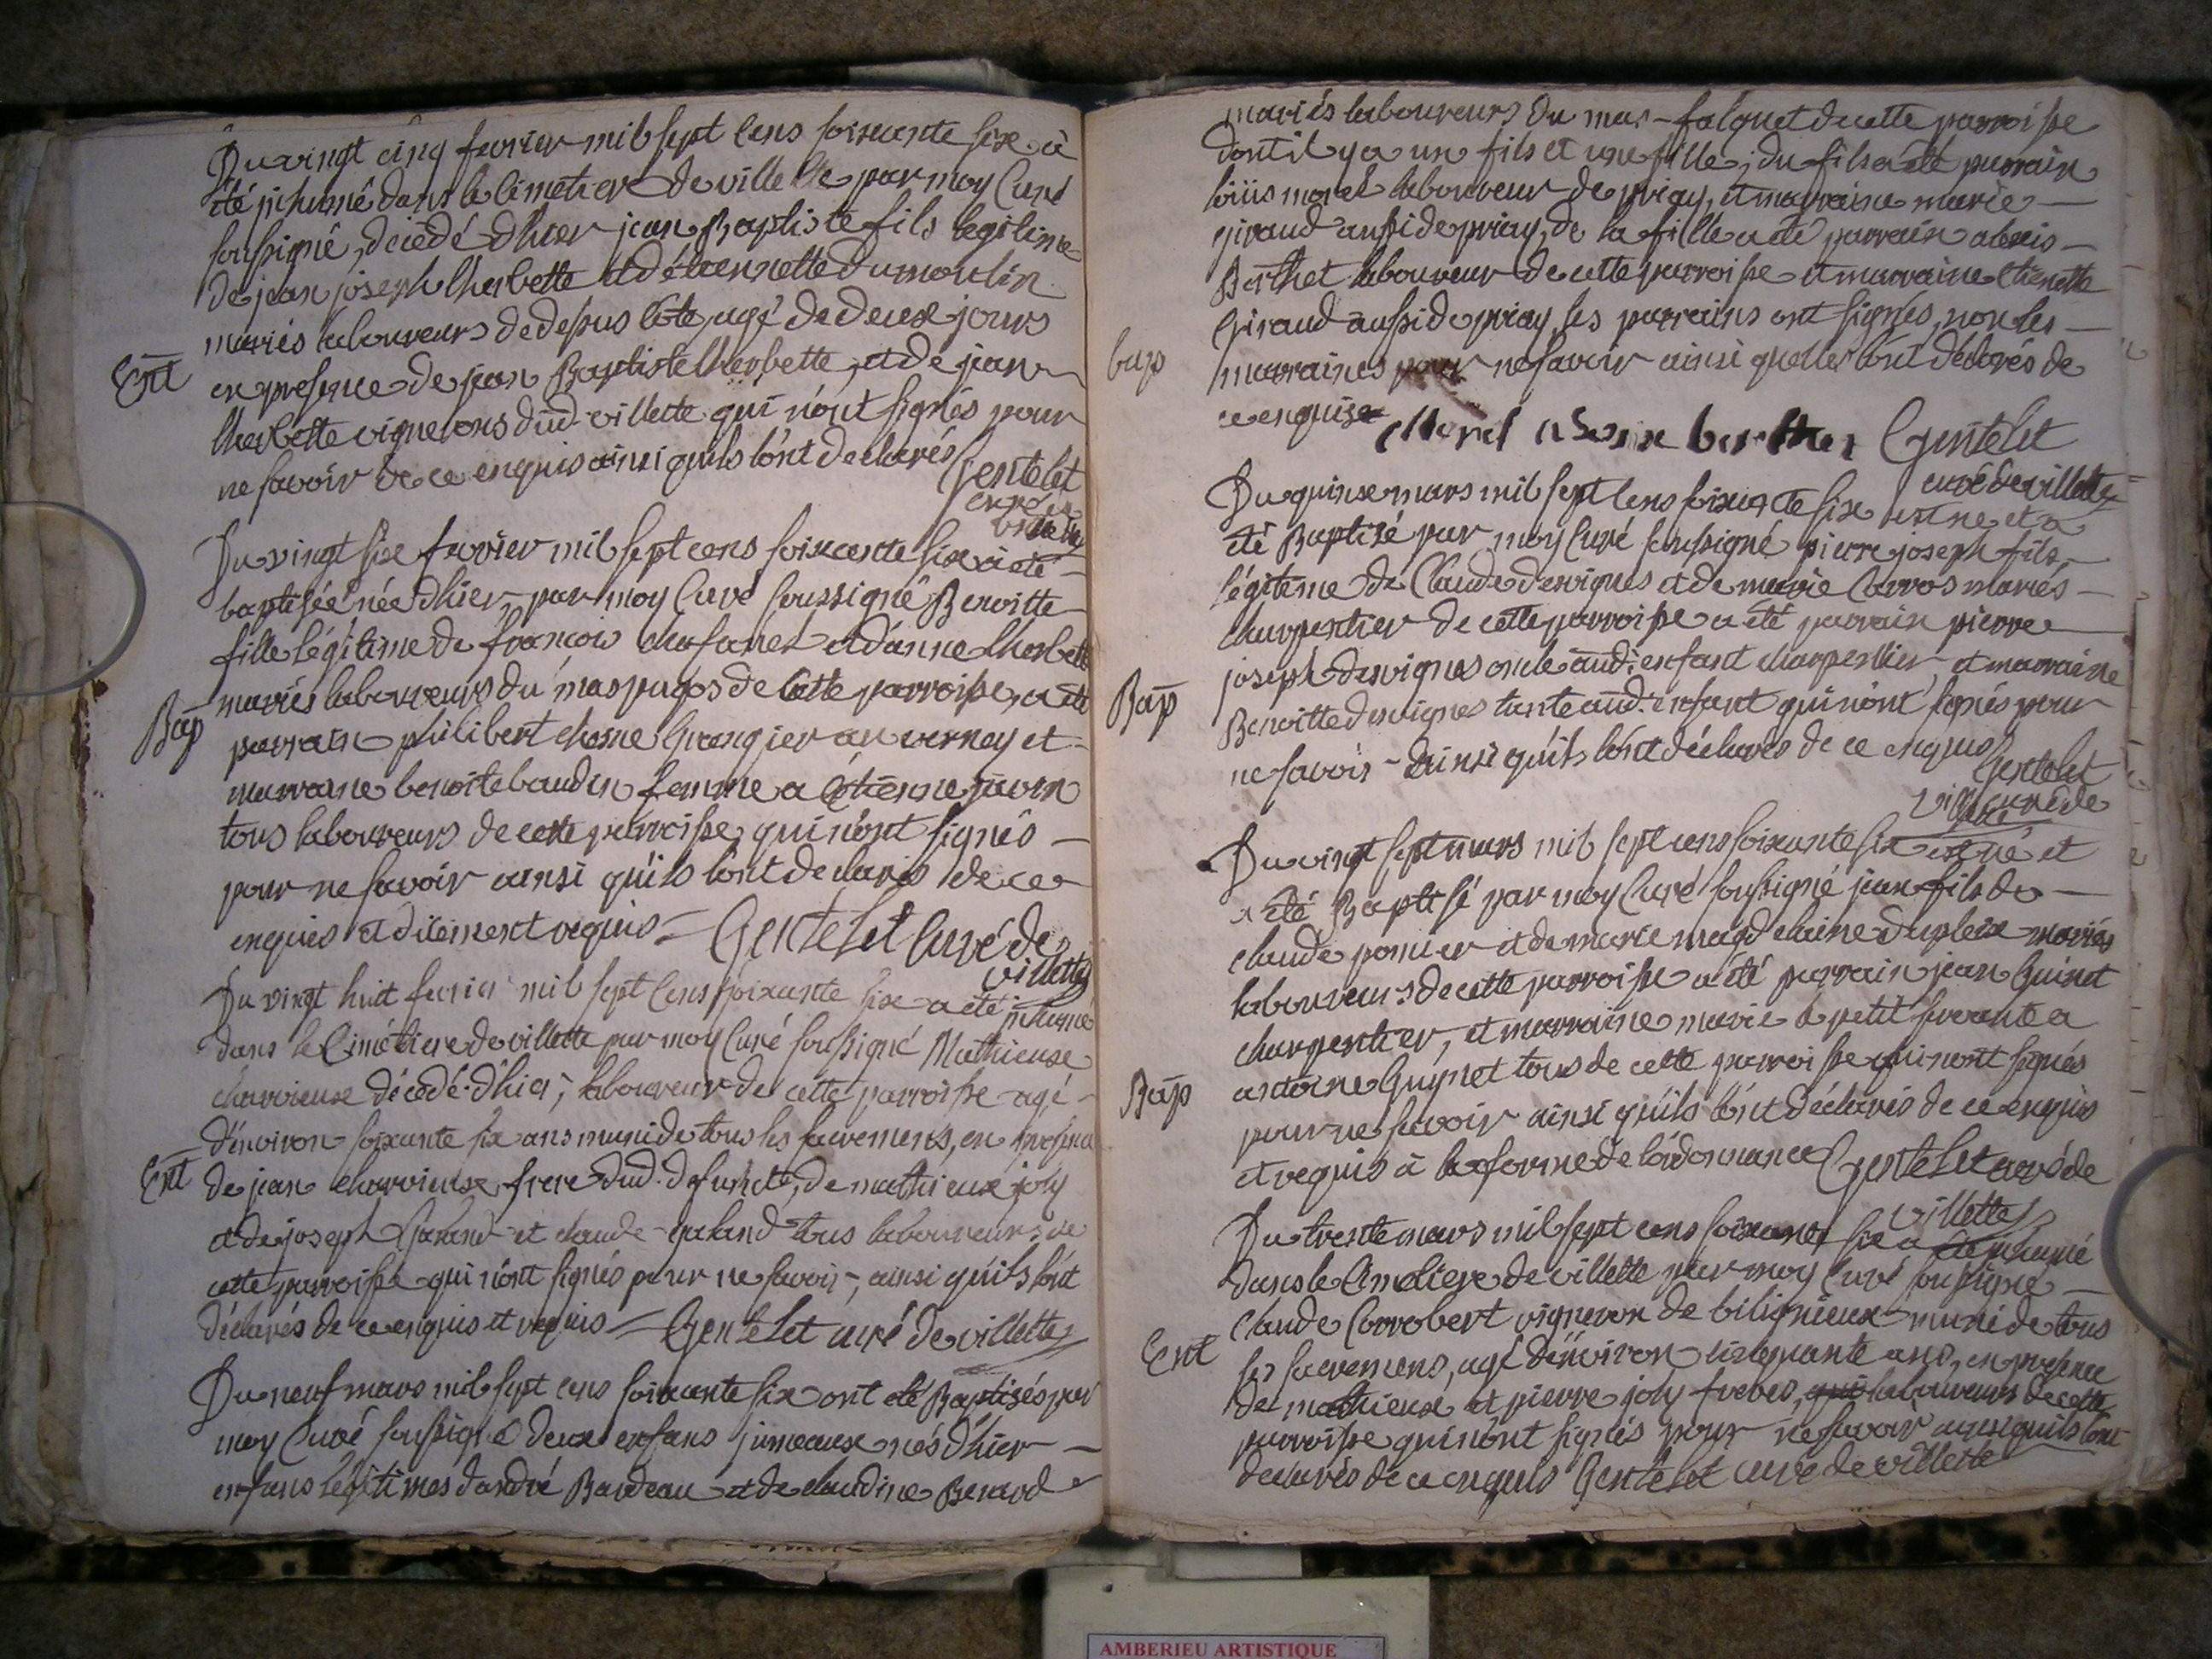 Du vingt cinq fevrier mil sept cens soixante six a
été inhumé dans le cimetiere de villette par moy curé
soussigné, décédé d'hier jean Baptiste fils legitime
de jean joseph lherbette et d'étiennette dumoulin
mariés laboureurs de dessus côte, agé de deux jours
Ent
en presence de jean Baptiste lherbette, et de jean
lherbette vignerons dud. villette qui n'ont signés pour
ne savoir de ce enquis ainsi quils l'ont declarés
Gentelet
curé
Du vingt six fevrier mil sept cens soixante six a été
baptisée née d'hier par moy curé soussigné Benoitte
fille légitime de françois chafanel et d'anne lherbette
mariés laboureurs du mas pugos de cette parroisse, a été
Bap
parrain philibert chosne Grangier au verney et
marraine benoite baudin femme a étienne
tous laboureurs de cette parroisse qui n'ont signés
pour ne savoir ainsi qu'ils l'ont declarés de ce
enquis et requis Gentelet curé de
villette
Du vingt huit fevrier mil sept cens soixante six a été inhumé
dans le Cimétiere de villette par moy Curé soussigné Mathieuse
charvieuse décedé d'hier, laboureur de cette parroisse agé
d'environ soixante six ans muni de tous les sacremens, en presence
Ent
de jean charvieuse frere dud. defunctte, de mathieux joly
et de joseph Galand et claude Galand tous laboureurs de
cette parroisse qui n'ont signés pour ne savoir, ainsi qu'ils l'ont
déclarés de ce enquis et requis Gentelet curé de villette
Du neuf mars mil sept cens soixante six ont été Baptisés par
moy Curé soussigné deux enfans jumeaux nés d'hier
enfans légitimes d'andré Bardeau et de claudine Berard
mariés laboureurs du mas falquet de cette parroisse
dont il y a un fils et une fille, du fils a été parrain
loüis morel laboureur de priay, et marraine marie
giraud aussi de priay, de la fille a été parrain alexis
Berthet laboureur de cette parroisse et marraine étienette
Giraud aussi de priay, les parrains ont signés, non les
bap
marraines pour ne savoir ainsi quelles l'ont déclarés de
ce enquise
Morel Gentelet
curé de villette
Du quinse mars mil sept cens soixante six est né et a
été Baptisé par moy Curé soussigné pierre joseph fils
légitime de Claude desvignes et de marie Carros mariés
charpentier de cette parroisse a été parrain pierre
joseph desvignes oncle aud. enfant charpentier, et marraine
Bap
Benoitte desvignes tante aud. enfant qui n'ont signés pour
ne savoir ainsi qu'ils l'ont déclarés de ce enquis
Gentelet
curé de
villette
Du vingt sept mars mil sept cens soixante six est né et
a été Baptisé par moy Curé soussigné jean fils de
claude et de marie magdelaine dupleix mariés
laboureurs de cette parroisse a été parrain jean Guinet
charpentier, et marraine marie petit servante a
antoine Guynet tous de cette parroisse qui n'ont signés
Bap
pour ne savoir ainsi qu'ils l'ont déclarés de ce enquis
et requis à la forme de l'ordonnance Gentelet curé de
villette
Du trente mars mil sept cens soixante six a été inhumé
dans le Cimetiere de villette par moy Curé soussigné
Claude Corrobert vigneron de bilignieux muni de tous
Ent
les sacremens, agé d'environ cinquante ans, en presence
de mathieux et pierre joly freres, qui laboureurs de cette
parroisse qui n'ont signés pour ne savoir ainsi quils l'ont
declarés de ce enquis Gentelet curé de villette
AMBERIEU ARTISTIQUE